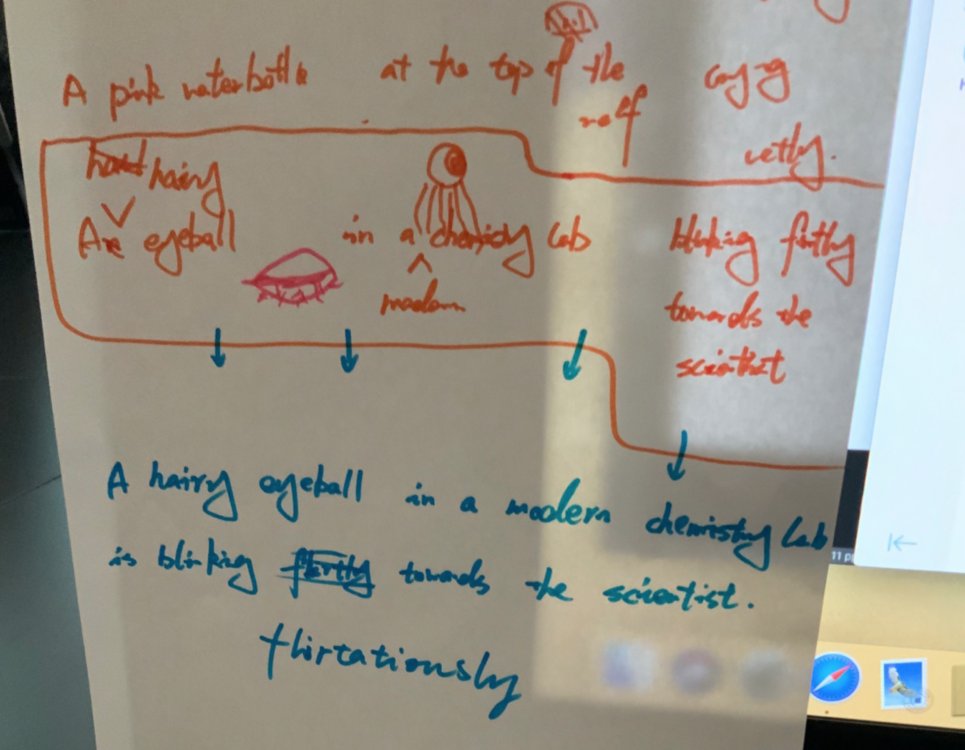 A pink waterbottle at the top of the crying
hairy
A eyeball in a chemistry lab blinking firtly
modern towards the
scientist
A hairy eyeball in a modern chemistry lab
is blinking towards the scientist.
flirtationsly